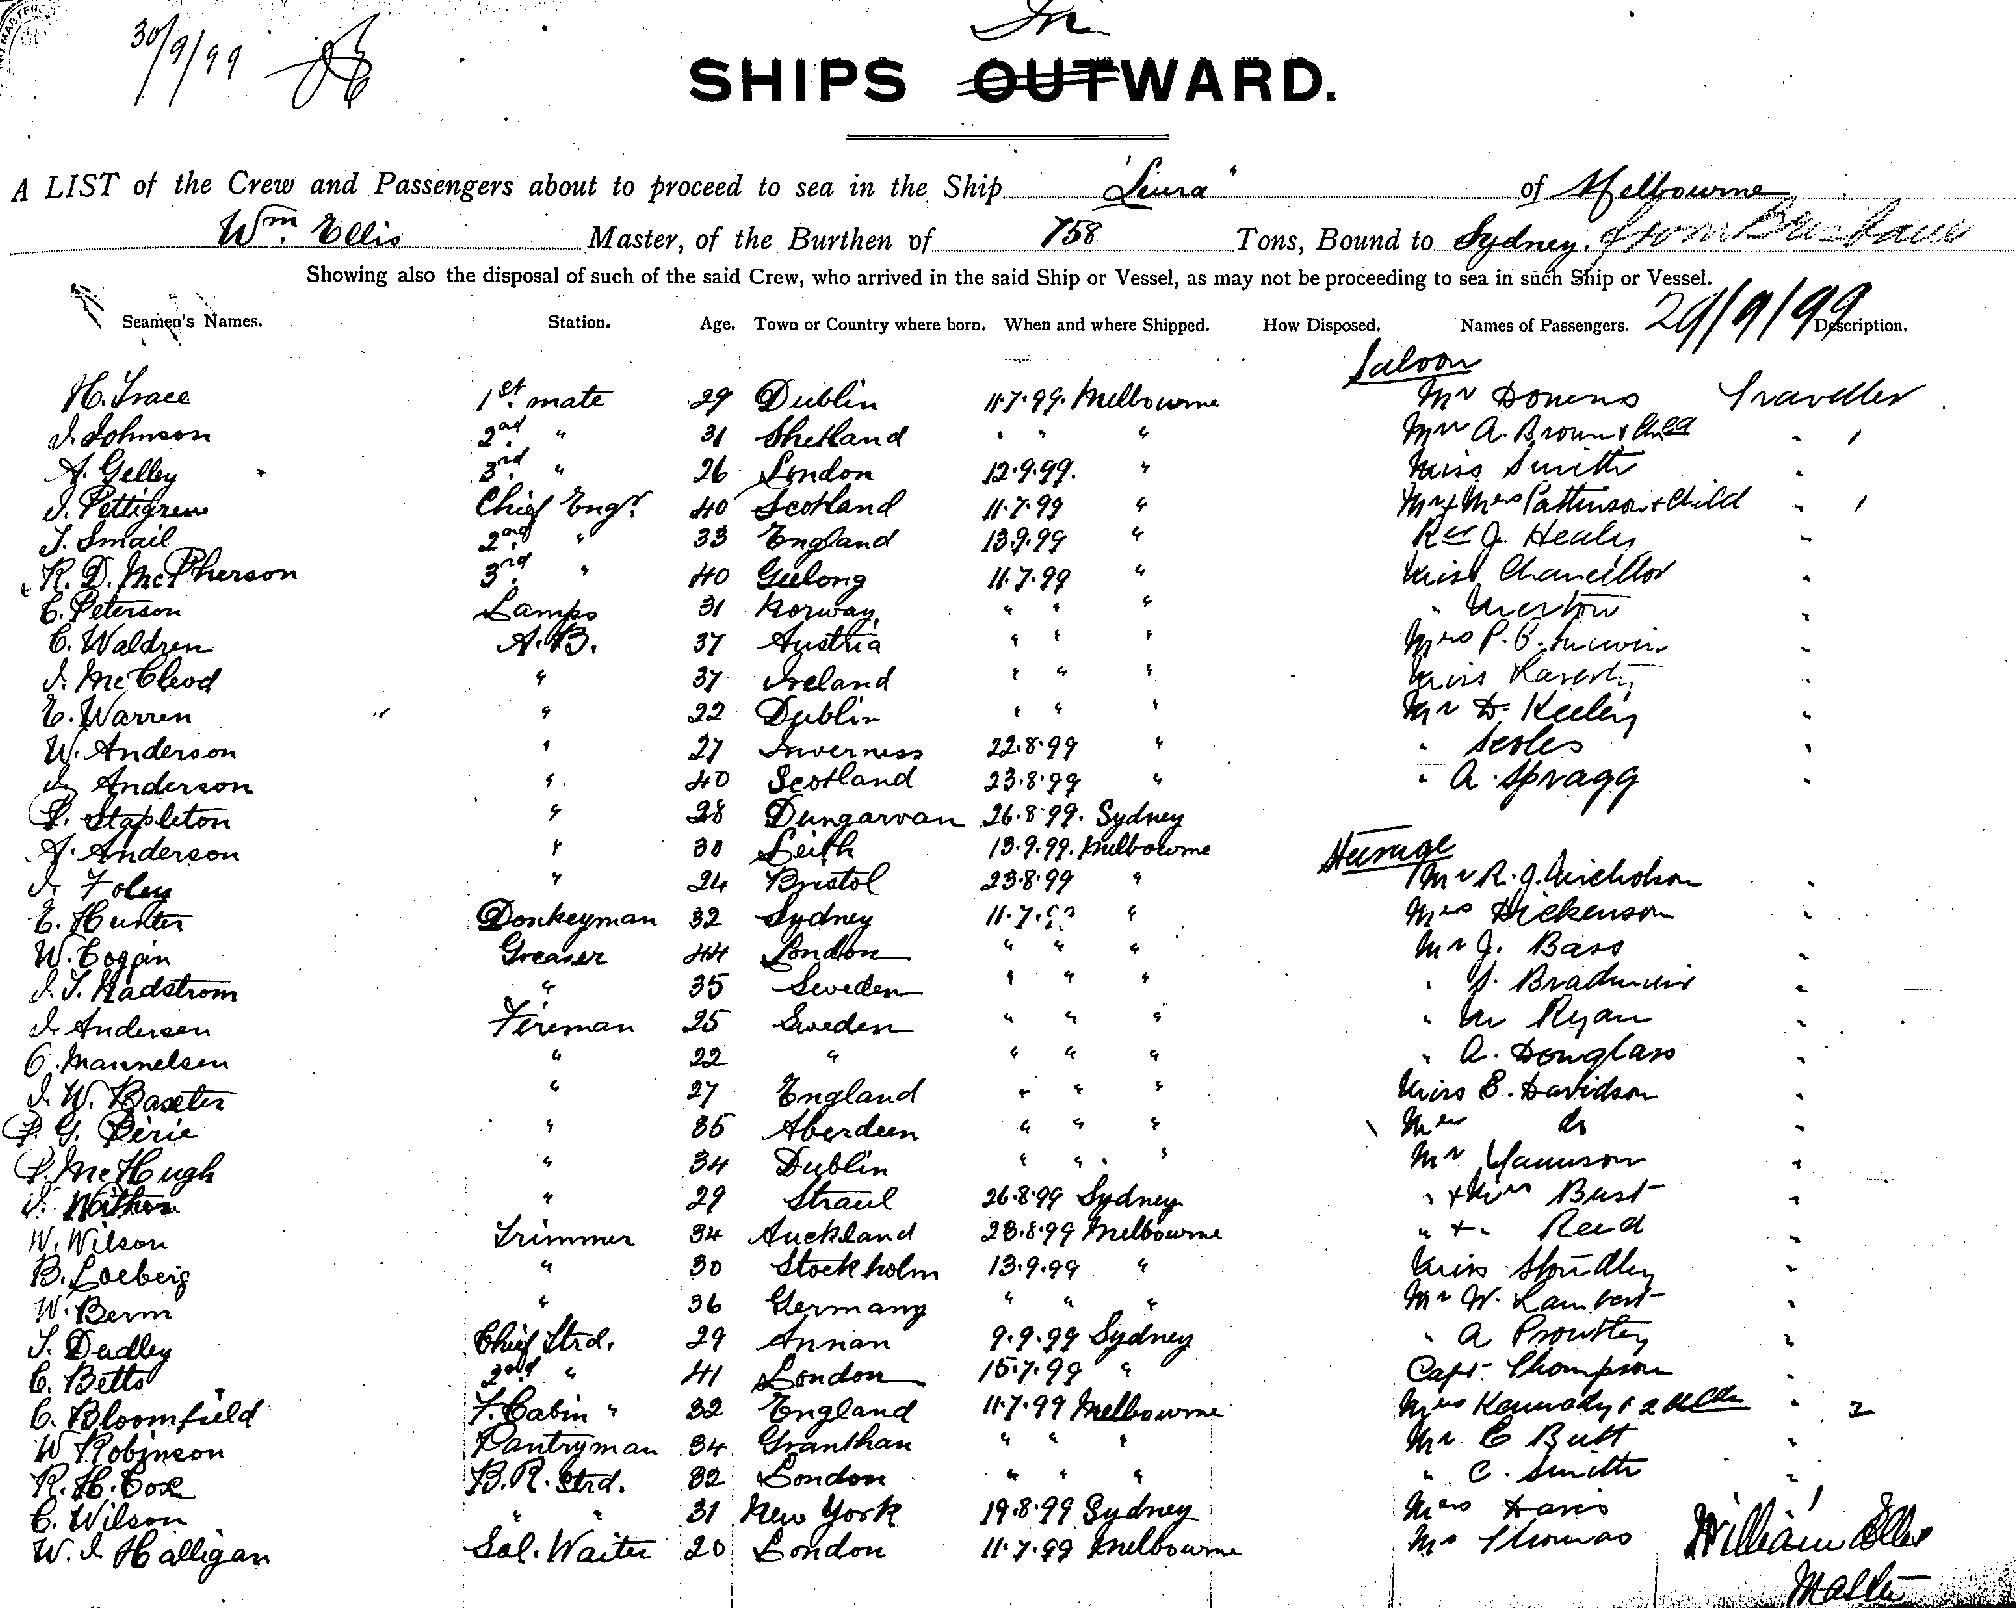 30/9/99
In
SHIPS OUTWARD.
A LIST of the Crew and Passengers about to proceed to sea in the Ship "Leura" of Melbourne
Wm. Ellis Master, of the Burthen of 758 Tons, Bound to Sydney. from Brisbane
Showing also the disposal of such of the said Crew, who arrived in the said Ship or Vessel, as may not be proceeding to sea in such Ship or Vessel.
29/9/99
Seamen's Names. Station. Age. Town or Country where born. When and where Shipped. How Disposed. Names of Passengers. Description.
Saloon
H. Grace 1st. mate 29 Dublin 11.7.99. Melbourne Mr Downs Traveller
J. Johnson 2nd. " 31 Shetland " " " Mrs A. Brown & Child " 1
A. Gelley 3rd. " 26 London 12.9.99. " Miss Smith "
J. Pettigrew Chief Engr. 40 Scotland 11.7.99 " Mr & Mrs Pattinson & Child " 1
T. Smail 2nd. " 33 England 13.9.99 " Rev J. Healy "
R. D. McPherson 3rd. " 40 Geelong 11.7.99 " Miss Chancellor "
C. Peterson Lamps 31 Norway " " " " Merton "
C. Waldren A.B. 37 Austria " " " Mrs P. C. "
J. McCleod " 37 Ireland " " " Miss "
E. Warren " 22 Dublin " " " Mr D. Keeley "
W. Anderson " 27 Inverness 22.8.99 " " Scoles "
J. Anderson " 40 Scotland 23.8.99 " " A. Spragg "
P. Stapleton " 28 Dungarvan 26.8.99. Sydney
A. Anderson " 30 Leith 13.9.99. Melbourne
Steerage
J. Foley " 24 Bristol 23.8.99 " Mr R. J. Nicholson "
E. Hunter Donkeyman 32 Sydney 11.7.99 " Mrs Dickenson "
W. Cogan Greaser 44 London " " " Mr J. Bass "
J. T. Hadstrom " 35 Sweden " " " " J. "
J. Andersen Fireman 25 Sweden " " " " M Ryan "
C. Mannelsen " 22 " " " " " A. Douglass "
J. W. Baxter " 27 England " " " Miss E. Davidson "
P. G. Pirie " 35 Aberdeen " " " Mrs do "
P. McHugh " 34 Dublin " " " Mr "
J. " 29 26.8.99 Sydney " & Mrs Bust "
W. Wilson Trimmer 34 Auckland 23.8.99 Melbourne " & " Reid "
B. Loeberg " 30 Stockholm 13.9.99 " Miss Stoudley "
W. Berm " 36 Germany " " " Mr W. Lambert "
T. Dudley Chief Strd. 29 Annan 9.9.99 Sydney " A "
C. Betts 2nd " 41 London 15.7.99 " Capt. Thompson "
C. Bloomfield F. Cabin " 32 England 11.7.99 Melbourne Mrs Kennedy & 2 " 2
W. Robinson Pantryman 34 Granthan " " " Mr C Butt "
R. H. Cox B.R. Strd. 32 London " " " " C. Smith "
C. Wilson " " 31 New York 19.8.99 Sydney Mrs Davis "
W. J Halligan Sal. Waiter 20 London 11.7.99 Melbourne Mr Thomas
William Ellis
Master